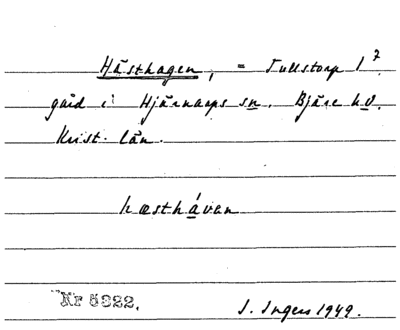 Hästhagen, = Tullstorp 1⁷.
gård i Hjärnarps sn. Bjäre hd.
Krist. län.
hæsthávan
Nr 5822.
I. Ingers 1949.